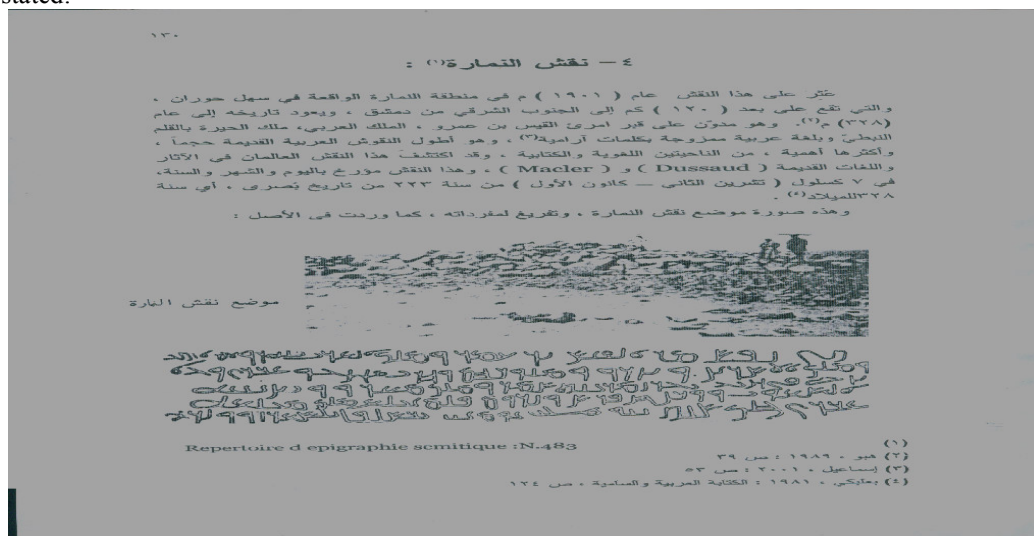 stated.
١٣٠
٤ – نقش النمارة(١) :
عثر على هذا النقش عام ( ١٩٠١ ) م في منطقة النمارة الواقعة في سهل حوران ،
والتي تقع على بعد ( ١٢٠ ) كم إلى الجنوب الشرقي من دمشق ، ويعود تاريخه إلى عام
(٣٢٨) م(٢). وهو مدوّن على قبر امرئ القيس بن عمرو ، الملك العربي، ملك الحيرة بالقلم
النبطيّ وبلغة عربية ممزوجة بكلمات آرامية(٣) ، وهو أطول النقوش العربية القديمة حجماً ،
وأكثرها أهمية ، من الناحيتين اللغوية والكتابية ، وقد اكتشف هذا النقش العالمان في الآثار
واللغات القديمة ( Dussaud ) و ( Macler ) ، وهذا النقش مؤرخ باليوم والشهر والسنة،
في ٧ كسلول ( تشرين الثاني – كانون الأول ) من سنة ٢٢٣ من تاريخ بُصرى ، أي سنة
٣٢٨للميلاد(٤) .
وهذه صورة موضع نقش النمارة ، وتفريغ لمفرداته ، كما وردت في الأصل :
موضع نقش النمارة
Repertoire d epigraphie semitique :N.483 (١)
(٢) هبو ، ١٩٨٩ : ص ٣٩
(٣) إسماعيل ، ٢٠٠١ : ص ٥٣
(٤) بعلبكي ، ١٩٨١ : الكتابة العربية والسامية ، ص ١٢٤